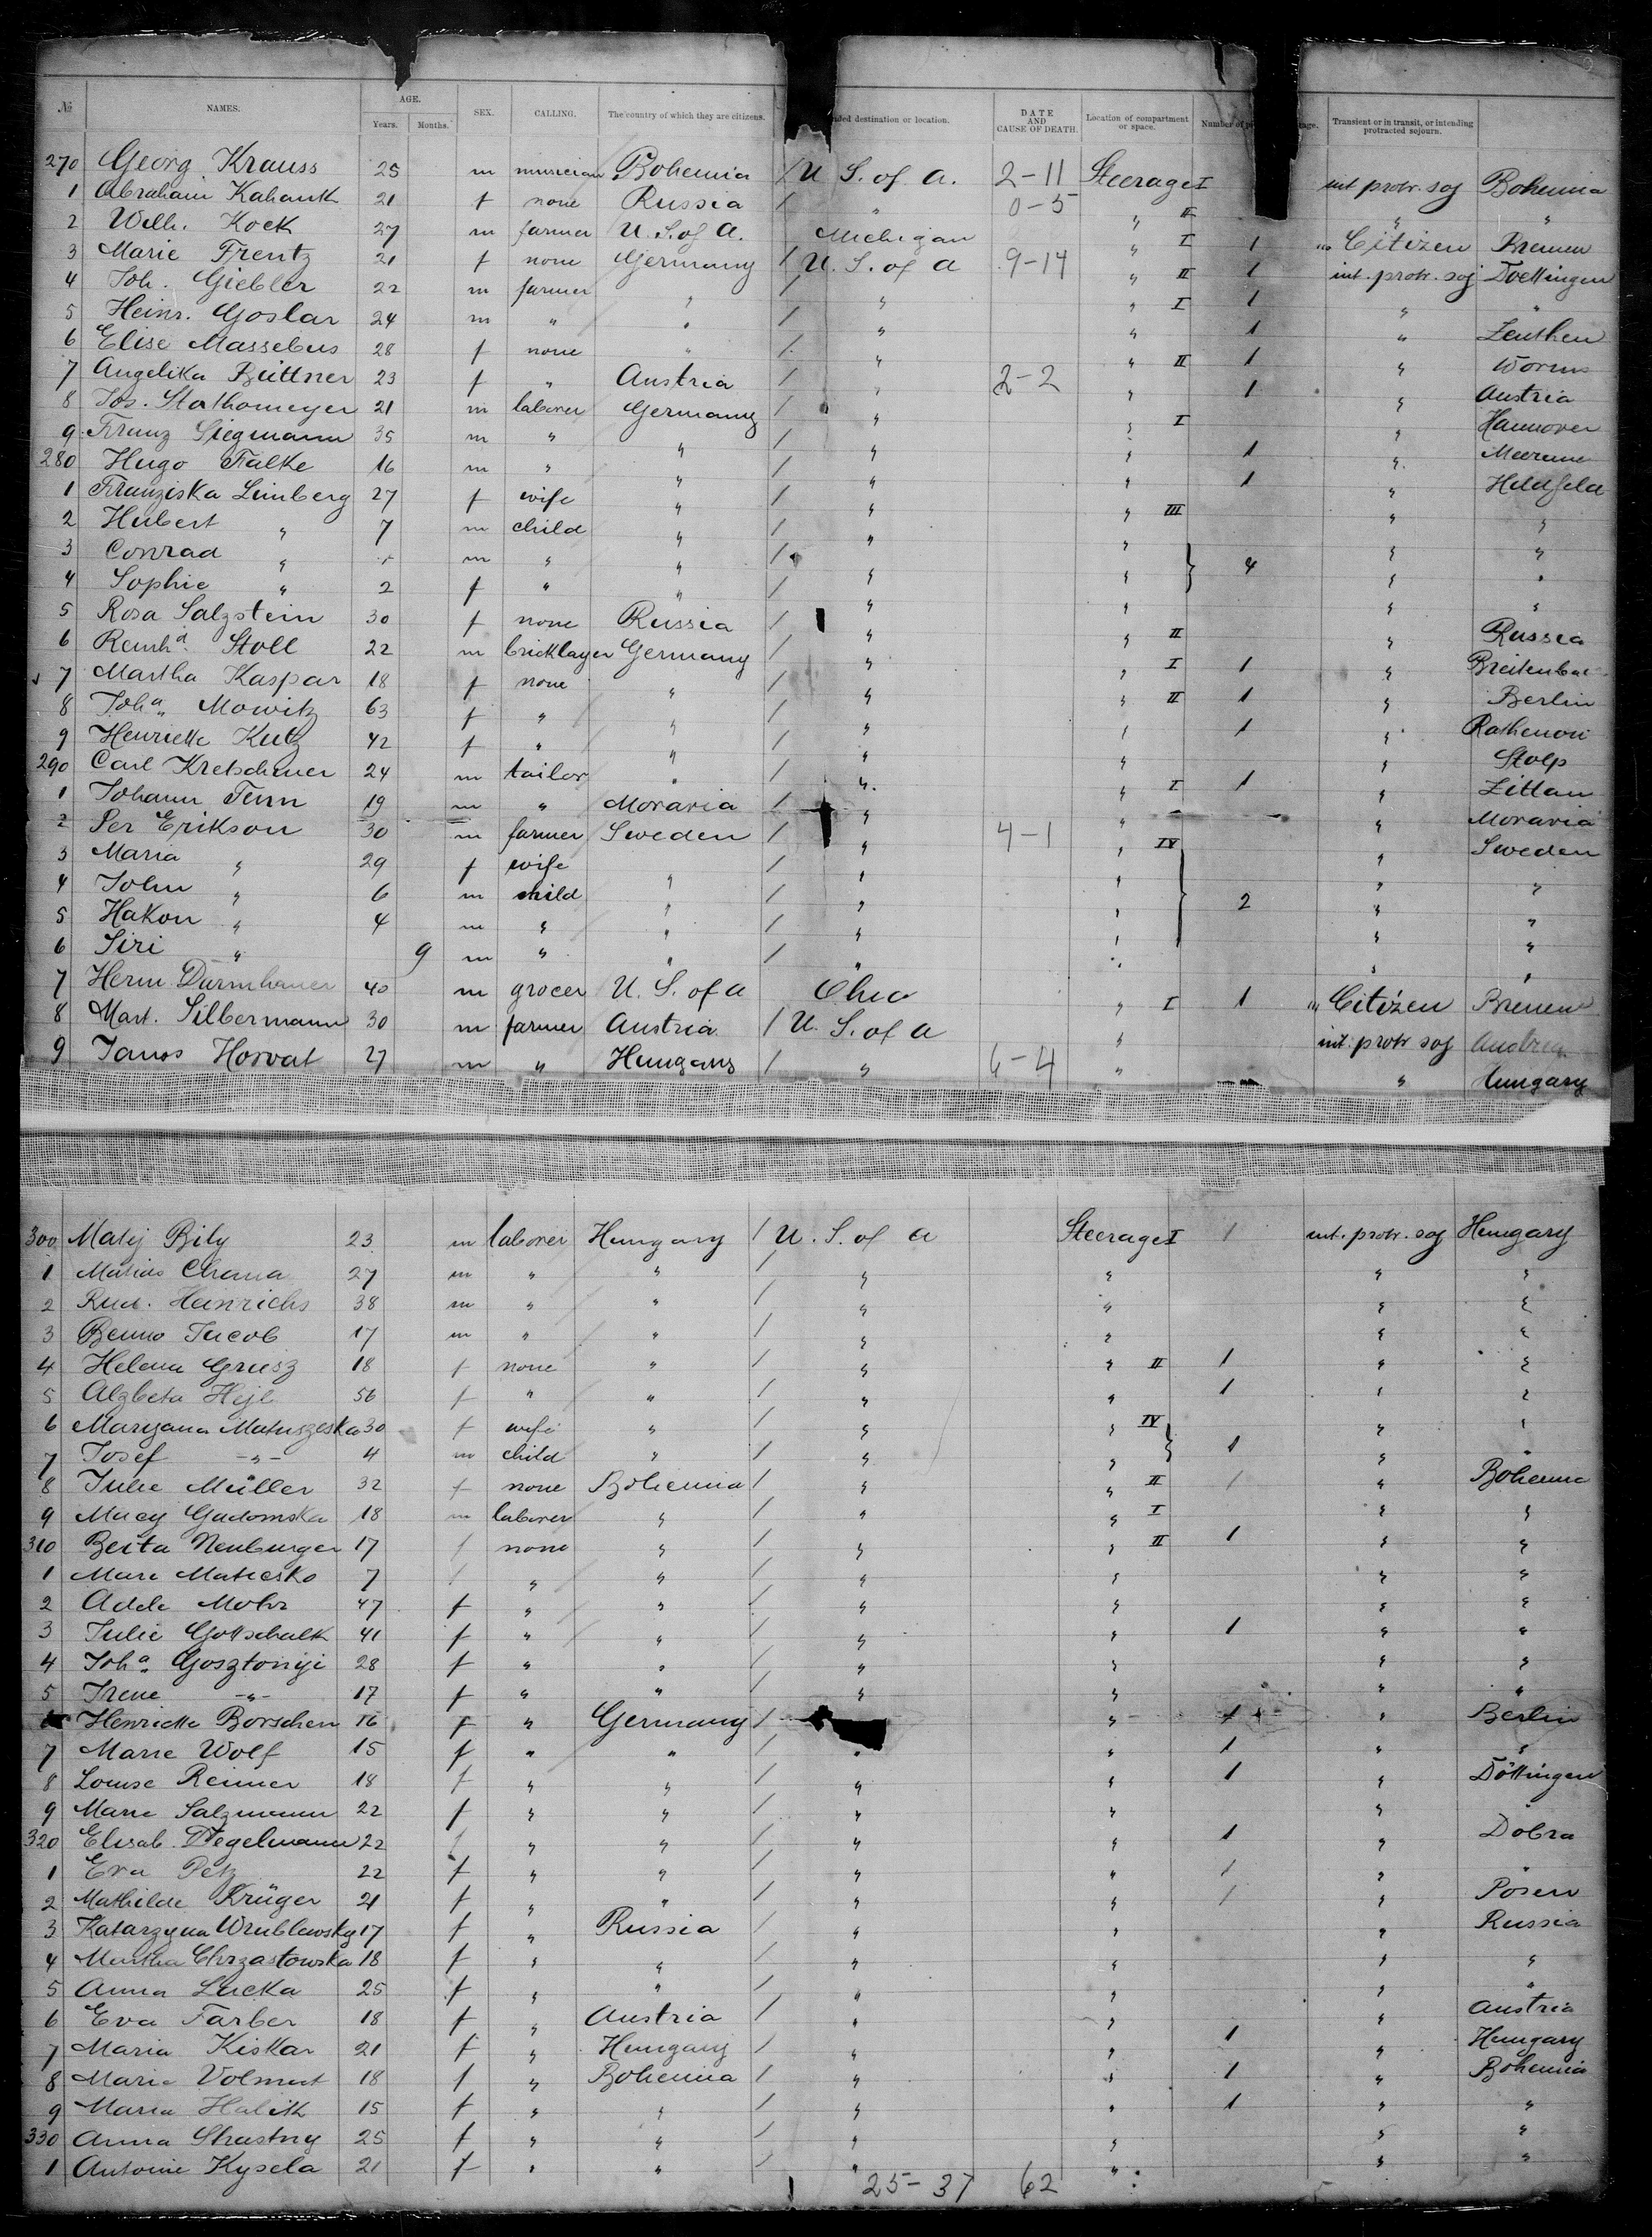 № NAMES. AGE. Years. Months. SEX. CALLING. The country of which they are citizens. nded destination or location. DATE AND CAUSE OF DEATH. Location of compartment or space. Number of age. Transient or in transit, or intending protracted sojourn.
270 Georg Krauss 25 m musician Bohemia / U. S. of a. 2-11 Steerage I int protr. soj Bohemia
1 Abraham Kahank 21 f none Russia / " 0-5 " II " "
2 Wilh. Kock 27 m farmer U. S. of A. Michigan " I 1 " Citizen Bremen
3 Marie Frentz 21 f none Germany / U. S. of a 9-14 " II 1 int. protr. soj Doettingen
4 Joh. Giebler 22 m farmer " / " " I 1 " "
5 Heinr. Goslar 24 m " " / " " 1 " Zeuthen
6 Elise Massebus 28 f none " / " " II 1 " Worms
7 Angelika Büttner 23 f " Austria / " 2-2 " 1 " Austria
8 Jos. Stathomeyer 21 m laborer Germany / " " I " Hannover
9 Franz Siegmann 35 m " " / " " 1 " Meerane
280 Hugo Falke 16 m " " / " " 1 " Heldfeld
1 Franziska Limberg 27 f wife " / " " III " "
2 Hubert " 7 m child " / " " " "
3 Conrad " m " " / " " } 4 " "
4 Sophie " 2 f " " / " " " "
5 Rosa Salzstein 30 f none Russia / " " II " Russia
6 Reinhd. Stoll 22 m bricklayer Germany / " " I 1 " Breitenbac
7 Martha Kaspar 18 f none " / " " II 1 " Berlin
8 Joha. Mowitz 63 f " " / " " 1 " Rathenow
9 Henriette Kutz 42 f " " / " " " Stolp
290 Carl Kretschmer 24 m tailor " / " " I 1 " Zittau
1 Johann Tum 19 m " Moravia / " " " Moravia
2 Per Erikson 30 m farmer Sweden / " 4-1 " IV " Sweden
3 Maria " 29 f wife " / " " " "
4 John " 6 m child " / " " } 2 " "
5 Hakon " 4 m " " / " " " "
6 Siri " 9 m " " / " " " "
7 Herm Durmhauer 40 m grocer U. S. of a Ohio " I 1 " Citizen Bremen
8 Mart. Silbermann 30 m farmer Austria / U. S. of a " int. protr soj Austria
9 Janos Horvat 27 m " Hungary / " 6-4 " " Hungary
300 Matij Bily 23 m laborer Hungary / U. S. of a Steerage I 1 int. protr. soj Hungary
1 Matias Chana 27 m " " / " " " "
2 Rud. Heinrichs 38 m " " / " " " "
3 Benno Jacob 17 m " " / " " " "
4 Helena Griesz 18 f none " / " " II 1 " "
5 Alzbeta Hejl 56 f " " / " " 1 " "
6 Maryana Matuszeska 30 f wife " / " " IV " "
7 Josef -"- 4 m child " / " " } 1 " "
8 Julie Müller 32 f none Bohemia / " " II 1 " Bohemia
9 Macy Gadomska 18 m laborer " / " " I " "
310 Berta Neuburger 17 f none " / " " II 1 " "
1 Mare Matiesko 7 f " " / " " " "
2 Adele Mohr 47 f " " / " " " "
3 Julie Gottschalk 41 f " " / " " 1 " "
4 Joha. Gosztonyi 28 f " " / " " " "
5 Irene -"- 17 f " " / " " " "
Henriette Borschen 16 f " Germany / " 1 " Berlin
7 Marie Wolf 15 f " " / " " 1 " "
8 Louise Reimer 18 f " " / " " 1 " Döttingen
9 Marie Salzmann 22 f " " / " " " "
320 Elisab. Tegelmann 22 f " " / " " 1 " Dobra
1 Eva Petz 22 f " " / " " 1 " "
2 Mathilde Krüger 21 f " " / " " 1 " Posen
3 Katarzyna Wrublewsky 17 f " Russia / " " " Russia
4 Martha Chrzastowska 18 f " " / " " " "
5 Anna Lucka 25 f " " / " " " "
6 Eva Farber 18 f " Austria / " " " Austria
7 Maria Kiskar 21 f " Hungary / " " 1 " Hungary
8 Marie Volmut 18 f " Bohemia / " " 1 " Bohemia
9 Maria Halik 15 f " " / " " 1 " "
330 Anna Shastny 25 f " " / " " " "
1 Antonie Kysela 21 f " " / " " " "
25-37 62